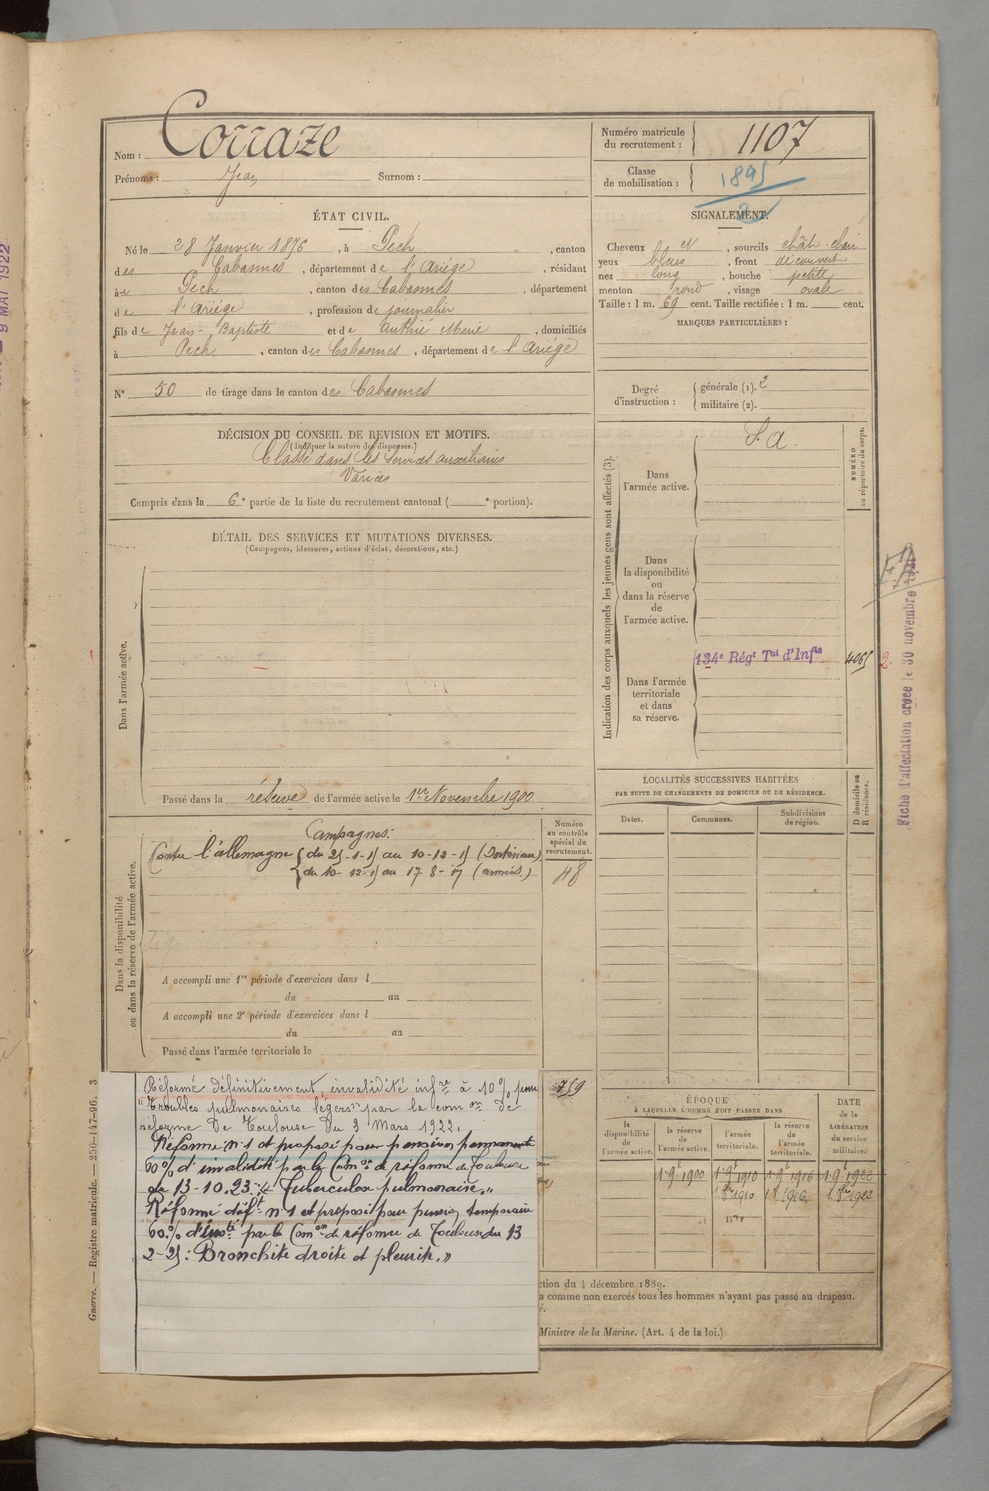 Nom : Corraze
Prénoms : Jean Surnom :
Numéro matricule du recrutement : 1107
Classe de mobilisation : 1895
2
ÉTAT CIVIL.
Né le 28 Janvier 1876, à Pech, canton
des Cabannes, département de l'Ariège, résidant
à Pech, canton des Cabannes, département
de l'Ariège, profession de journalier
fils de Jean-Baptiste et de Authié Marie, domiciliés
à Pech, canton des Cabannes, département de l'Ariège
N° 50 de tirage dans le canton des Cabannes
SIGNALEMENT.
Cheveux, sourcils chât. clair
yeux bleus, front découvert
nez long, bouche petite
menton rond, visage ovale
Taille : 1 m. 69 cent. Taille rectifiée : 1 m. cent.
MARQUES PARTICULIÈRES :
Degré d'instruction : générale (1). 2
militaire (2).
DÉCISION DU CONSEIL DE REVISION ET MOTIFS.
(Indiquer la nature des dispenses.)
Classé dans les Services auxiliaires
Varices
Compris dans la 6e partie de la liste du recrutement cantonal ( e portion).
DÉTAIL DES SERVICES ET MUTATIONS DIVERSES.
(Campagnes, blessures, actions d'éclat, décorations, etc.)
Dans l'armée active.
Passé dans la réserve de l'armée active le 1er Novembre 1900
Indication des corps auxquels les jeunes gens sont affectés (3).
NUMÉRO au répertoire du corps.
Dans l'armée active.
S. A.
Dans la disponibilité ou dans la réserve de l'armée active.
134e Régt Tal d'Infie
4065
2.
Dans l'armée territoriale et dans sa réserve.
Fiche d'affectation créée le 30 novembre
LOCALITÉS SUCCESSIVES HABITÉES
PAR SUITE DE CHANGEMENTS DE DOMICILE OU DE RÉSIDENCE.
Dates. Communes. Subdivisions de région. D domicile ou R résidence.
Dans la disponibilité ou dans la réserve de l'armée active.
Numéro au contrôle spécial du recrutement.
48
Campagnes :
Contre l'allemagne { du 25-1-15 au 10-12-15 (Intérieur)
{ du 10-12-15 au 17-8-17 (armées.)
A accompli une 1re période d'exercices dans l
du au
A accompli une 2e période d'exercices dans l
du au
Passé dans l'armée territoriale le
759
Réformé définitivement, invalidité infre à 10 % pour
"Troubles pulmonaires légers" par la com on de
réforme de Toulouse du 3 Mars 1922.
Réforme n° 1 et proposé pour pension permanente
60 % d'invalidité par la Comon de réforme de Toulouse
du 13-10.23 : "Tuberculose pulmonaire."
Réformé déft n° 1 et proposé pour pension temporaire
60 % d'invté par la Comon de réforme de Toulouse du 13
2-25 : Bronchite droite et pleurite."
ÉPOQUE
À LAQUELLE L'HOMME DOIT PASSER DANS
la disponibilité de l'armée active. la réserve de l'armée active. l'armée territoriale. la réserve de l'armée territoriale.
DATE de la LIBÉRATION du service militaire.
1 9e 1900 1 9e 1910 1 9e 1916 1 9e 1922
1 8re 1910 1 8re 1916 1 8re 1922
ction du 4 décembre 1889.
a comme non exercés tous les hommes n'ayant pas passé au drapeau.
Ministre de la Marine. (Art. 4 de la loi.)
Guerre. — Registre matricule. — 256-147-96. 3
9 MAI 1922